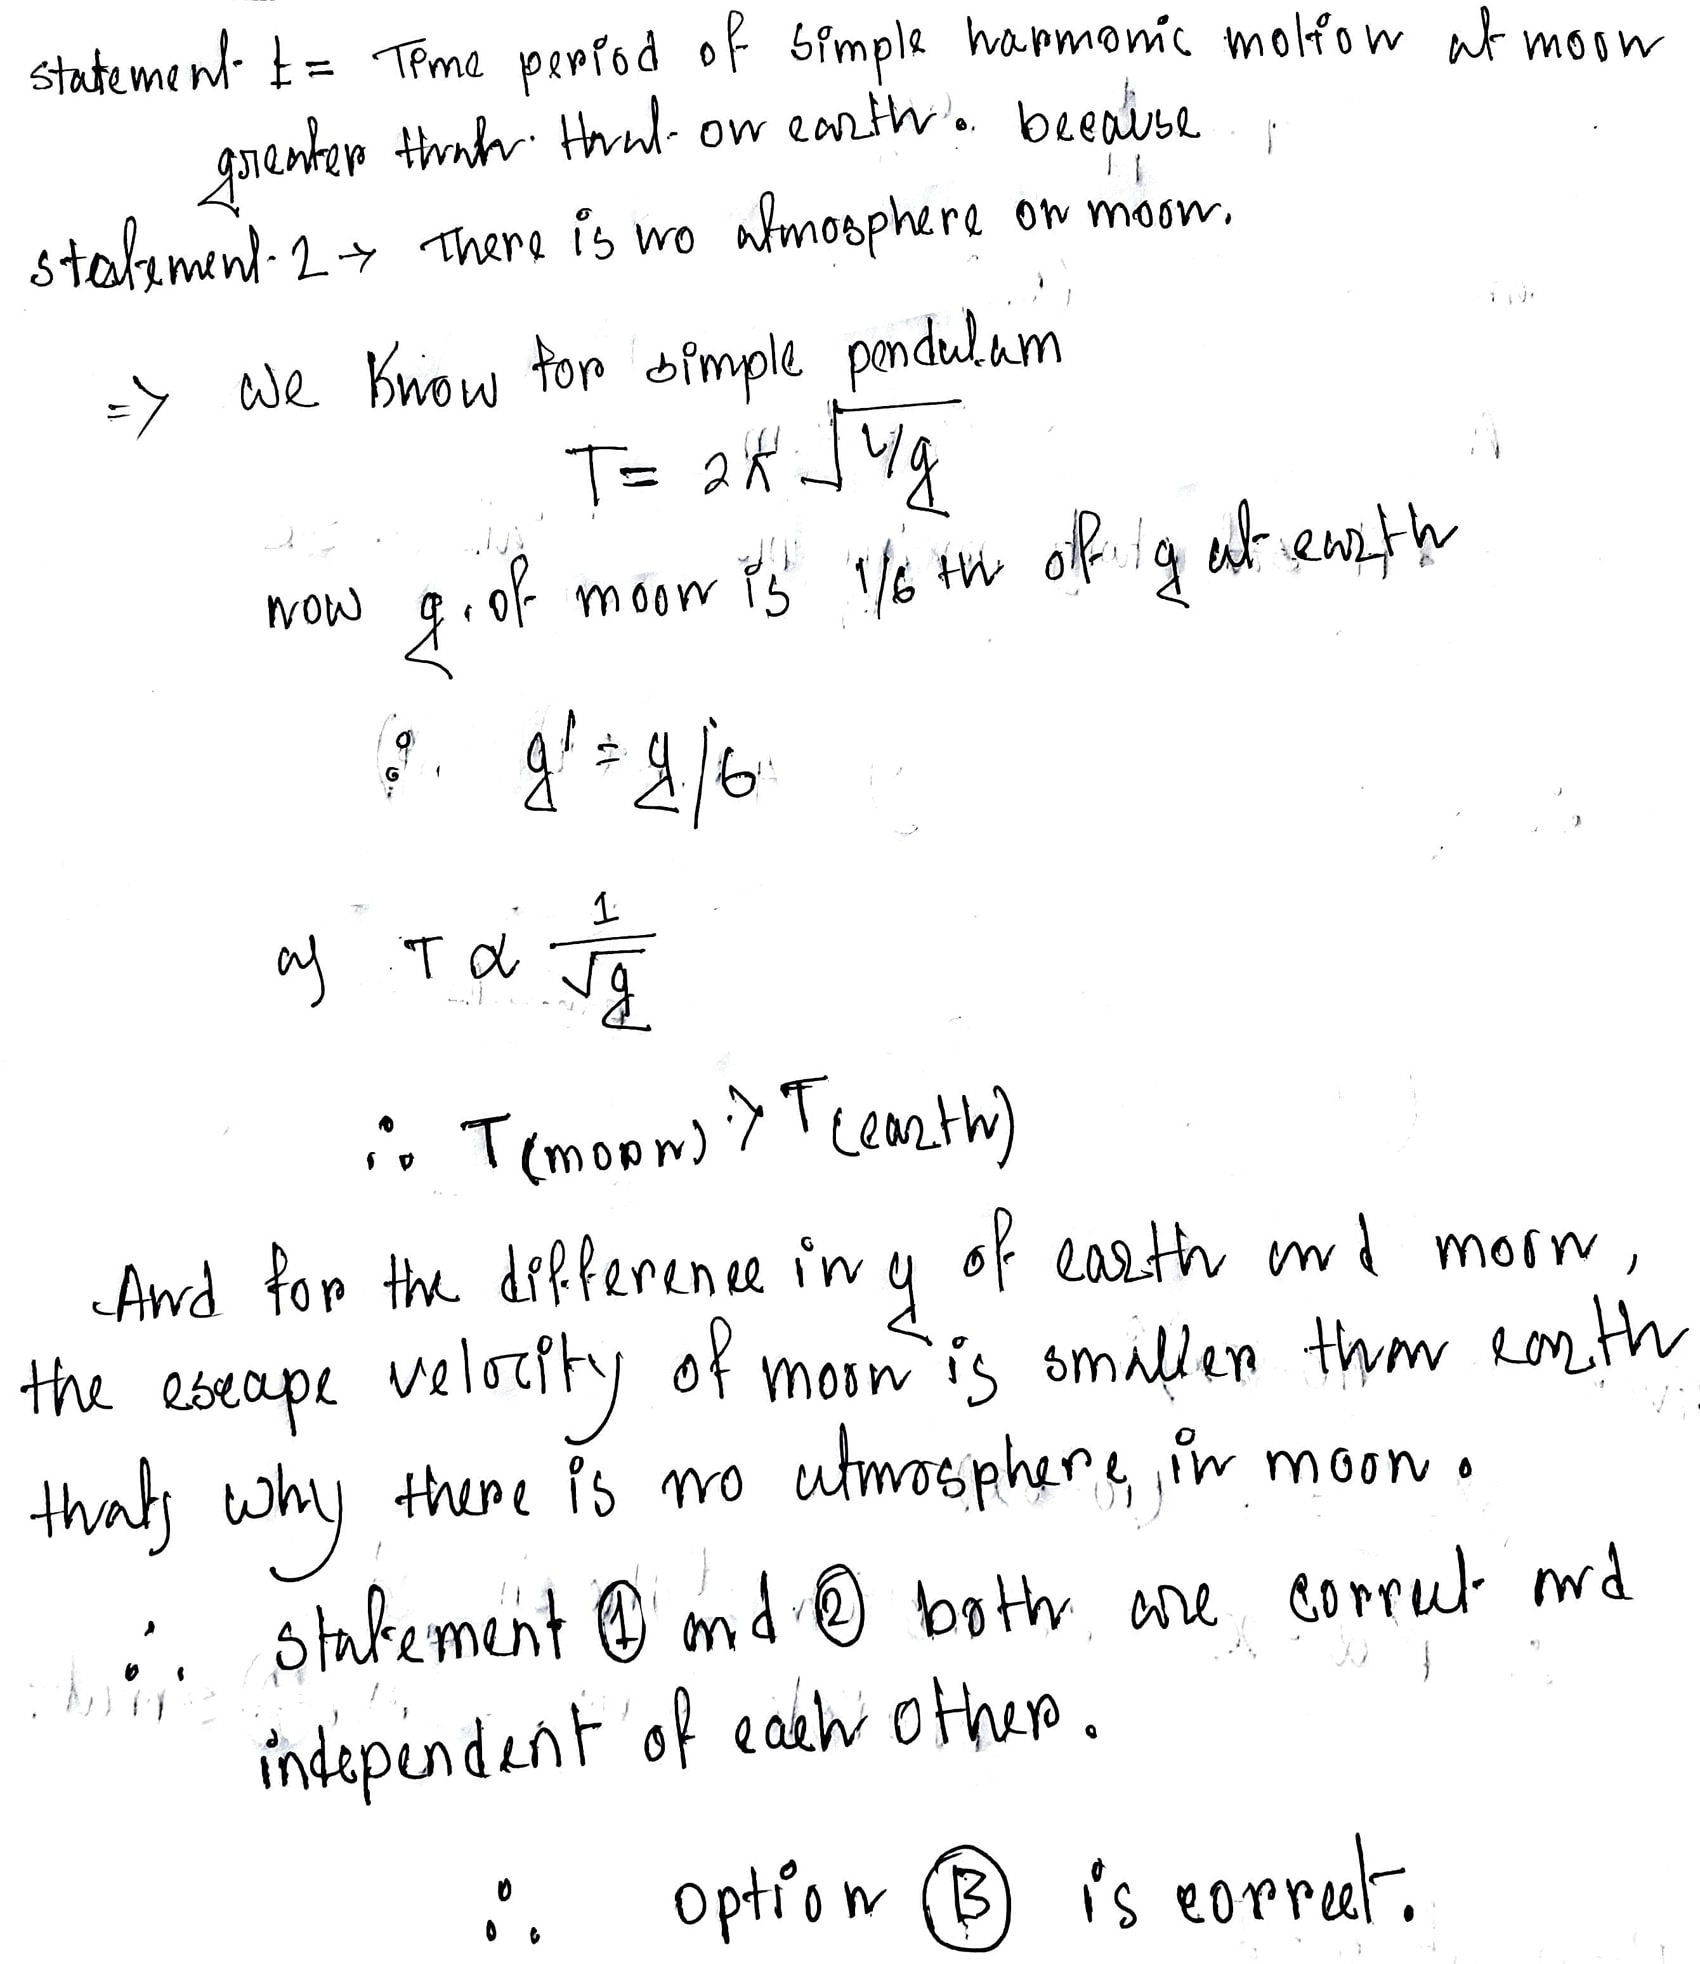 statement 1 = Time period of simple harmonic motion at moon
greater than that on earth. because
statement-2 → There is no atmosphere on moon.
=> We know for simple pendulam
T = 2π √L/g
now g. of moon is 1/6 th of g at earth
∴ g' = g/6
as T ∝ 1/√g
∴ T(moon) > T(earth)
And for the difference in g of earth and moon,
the escape velocity of moon is smaller than earth
thats why there is no atmosphere in moon.
∴ statement ① and ② both are correct and
independent of each other.
∴ option Ⓑ is correct.